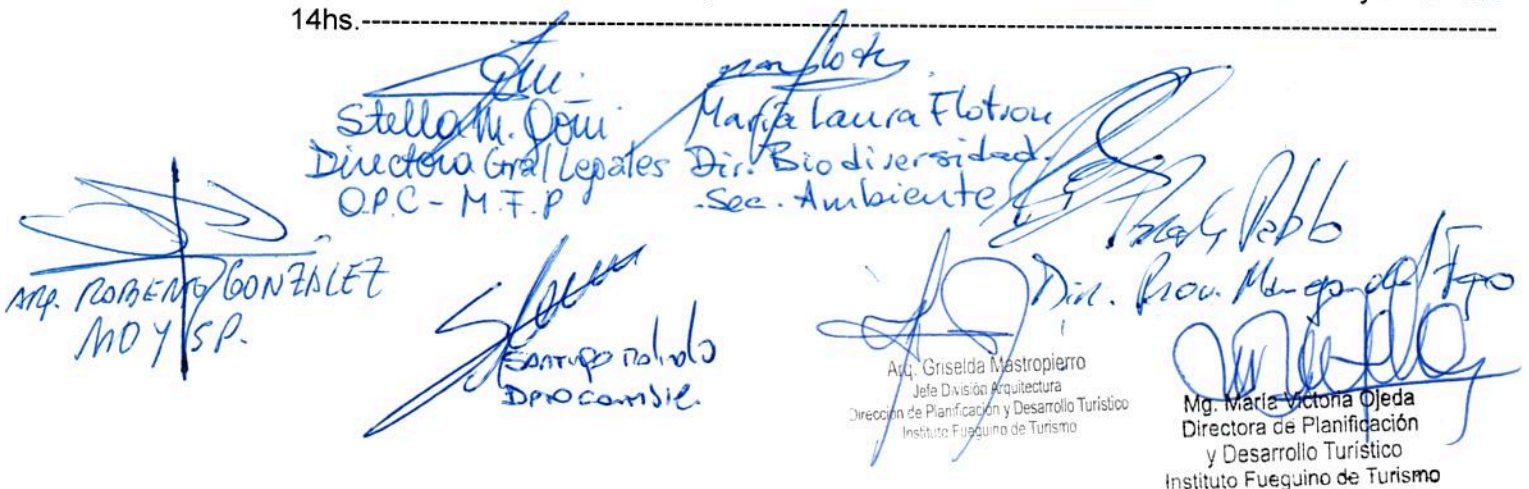 14hs.
Stella M. Goñi
Directora Gral Legales
O.P.C - M.F.P
María Laura Flotron
Dir. Biodiversidad.
Sec. Ambiente
Pablo
Dir. Prov. Manejo del Fuego
ARQ. ROBERTO GONZALEZ
MO Y SP.
Arq. Griselda Mastropierro
Jefe División Arquitectura
Dirección de Planificación y Desarrollo Turístico
Instituto Fueguino de Turismo
Mg. María Victoria Ojeda
Directora de Planificación
y Desarrollo Turístico
Instituto Fueguino de Turismo